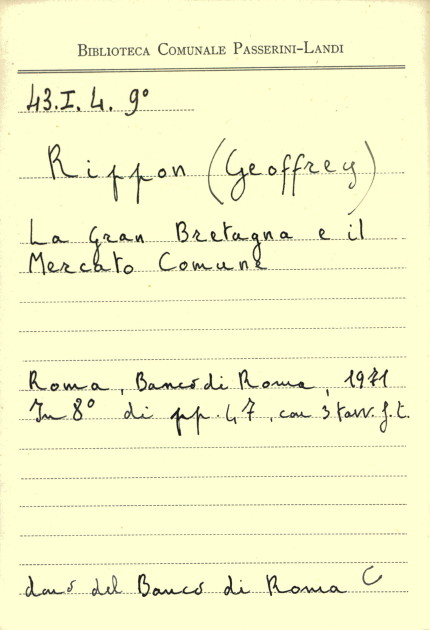 BIBLIOTECA COMUNALE PASSERINI-LANDI
43.I.4.9°
Rippon (Geoffrey)
La Gran Bretagna e il
Mercato Comune
Roma, Banco di Roma, 1971
In 8° di pp. 47, con 3 tavv. f.t.
dono del Banco di Roma C